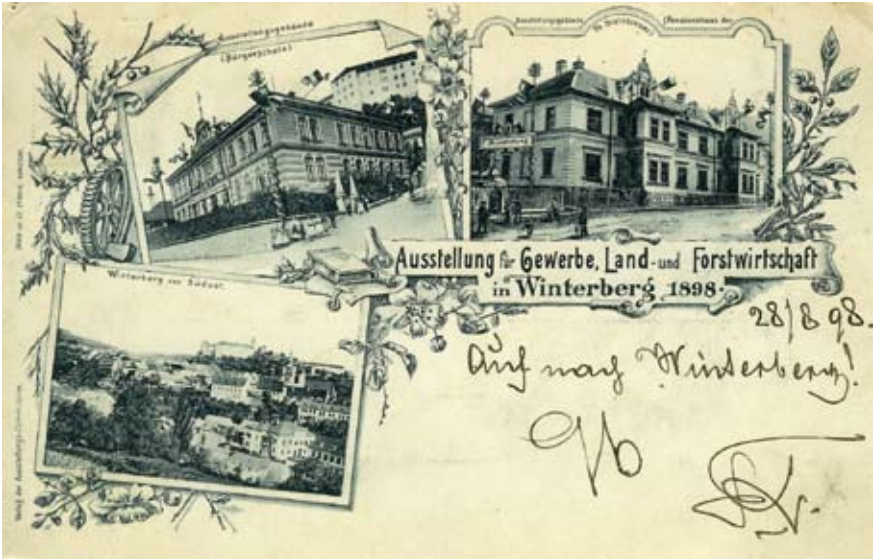 Ausstellungsgebäude
(Bürgerschule)
Ausstellungsgebäude
(Pensionshaus der
Ausstellung für Gewerbe, Land- und Forstwirtschaft
in Winterberg 1898.
Winterberg von Südost.
28/8 98.
Auf nach Winterberg!